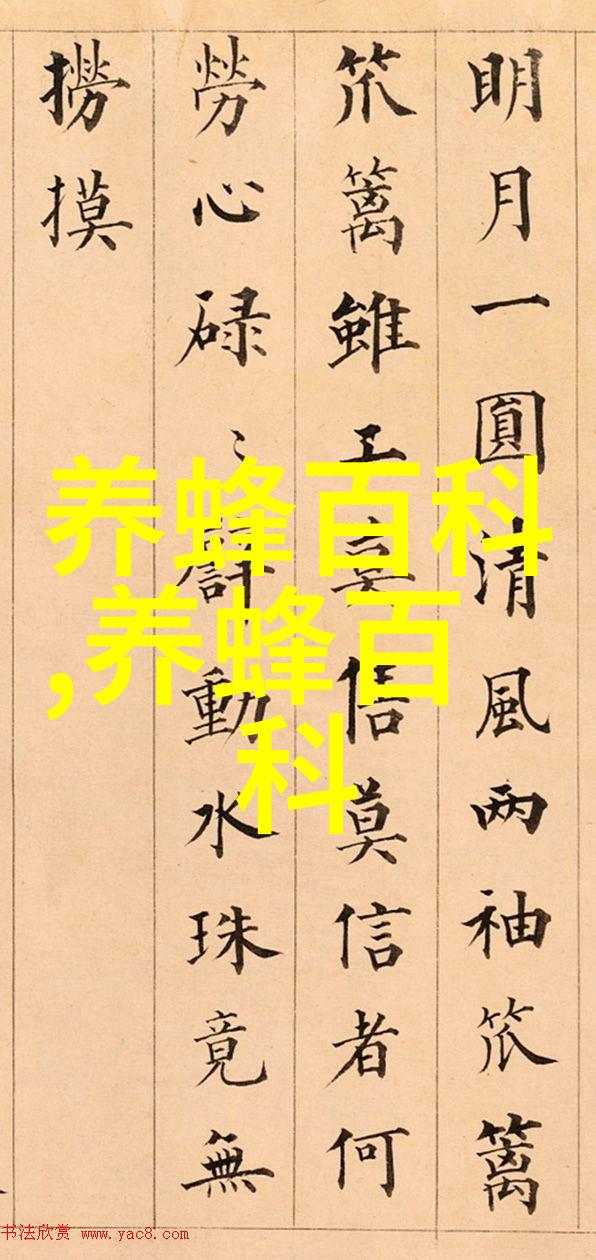 明月一圓清風两袖笊篱
笊篱雖工信莫信者何
勞心碌〻動水珠竟無
撈摸
养蜂百科
,养蜂百
科
书法欣赏 www.yac8.com